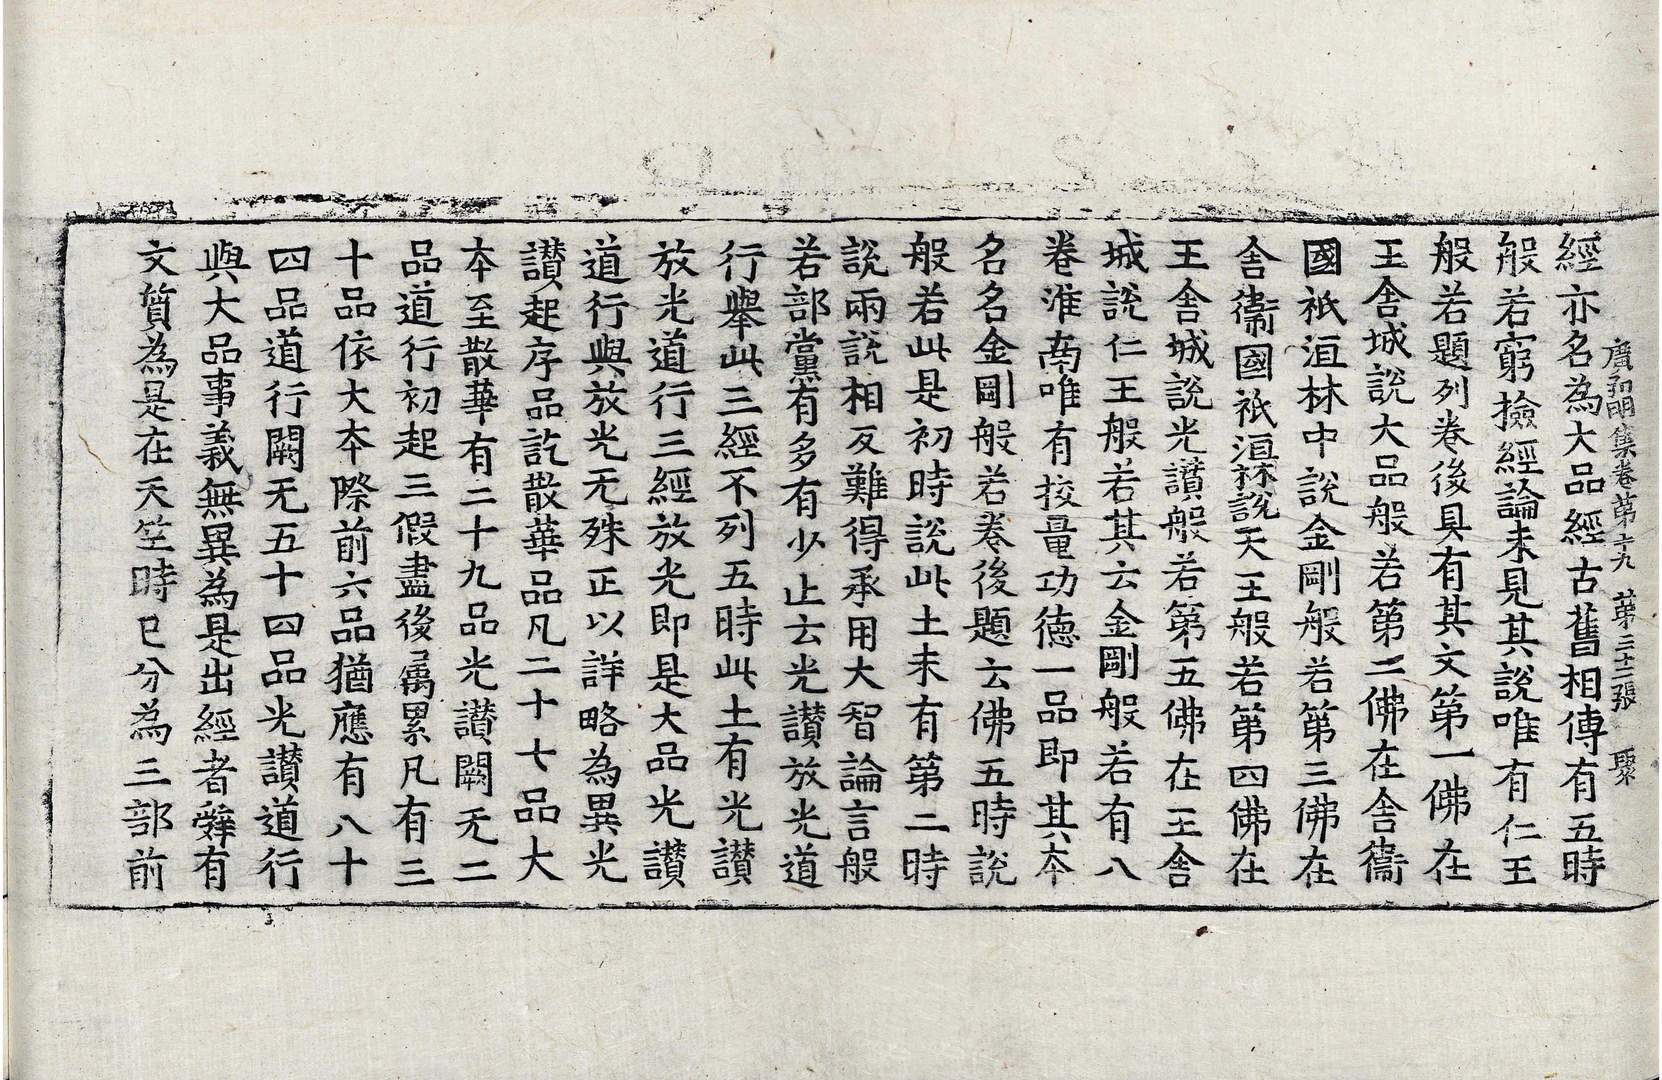 廣弘明集卷苐十九　苐三十二張　聚
經亦名為大品經古舊相傳有五時
般若窮撿經論未見其說唯有仁王
般若題列卷後具有其文第一佛在
王舍城說大品般若第二佛在舍衞
國祇洹林中說金剛般若第三佛在
舍衞國祇洹林說天王般若第四佛在
王舍城說光讃般若第五佛在王舍
城說仁王般若其云金剛般若有八
卷淮南唯有挍量功德一品即其本
名名金剛般若卷後題云佛五時說
般若此是初時說此土未有第二時
說兩說相反難得承用大智論言般
若部黨有多有少止云光讃放光道
行舉此三經不列五時此土有光讃
放光道行三經放光即是大品光讃
道行與放光无殊正以詳略為異光
讃起序品訖散華品凡二十七品大
本至散華有二十九品光讃闕无二
品道行初起三假盡後屬累凡有三
十品依大本際前六品猶應有八十
四品道行闕无五十四品光讃道行
與大品事義無異為是出經者辤有
文質為是在天竺時已分為三部前